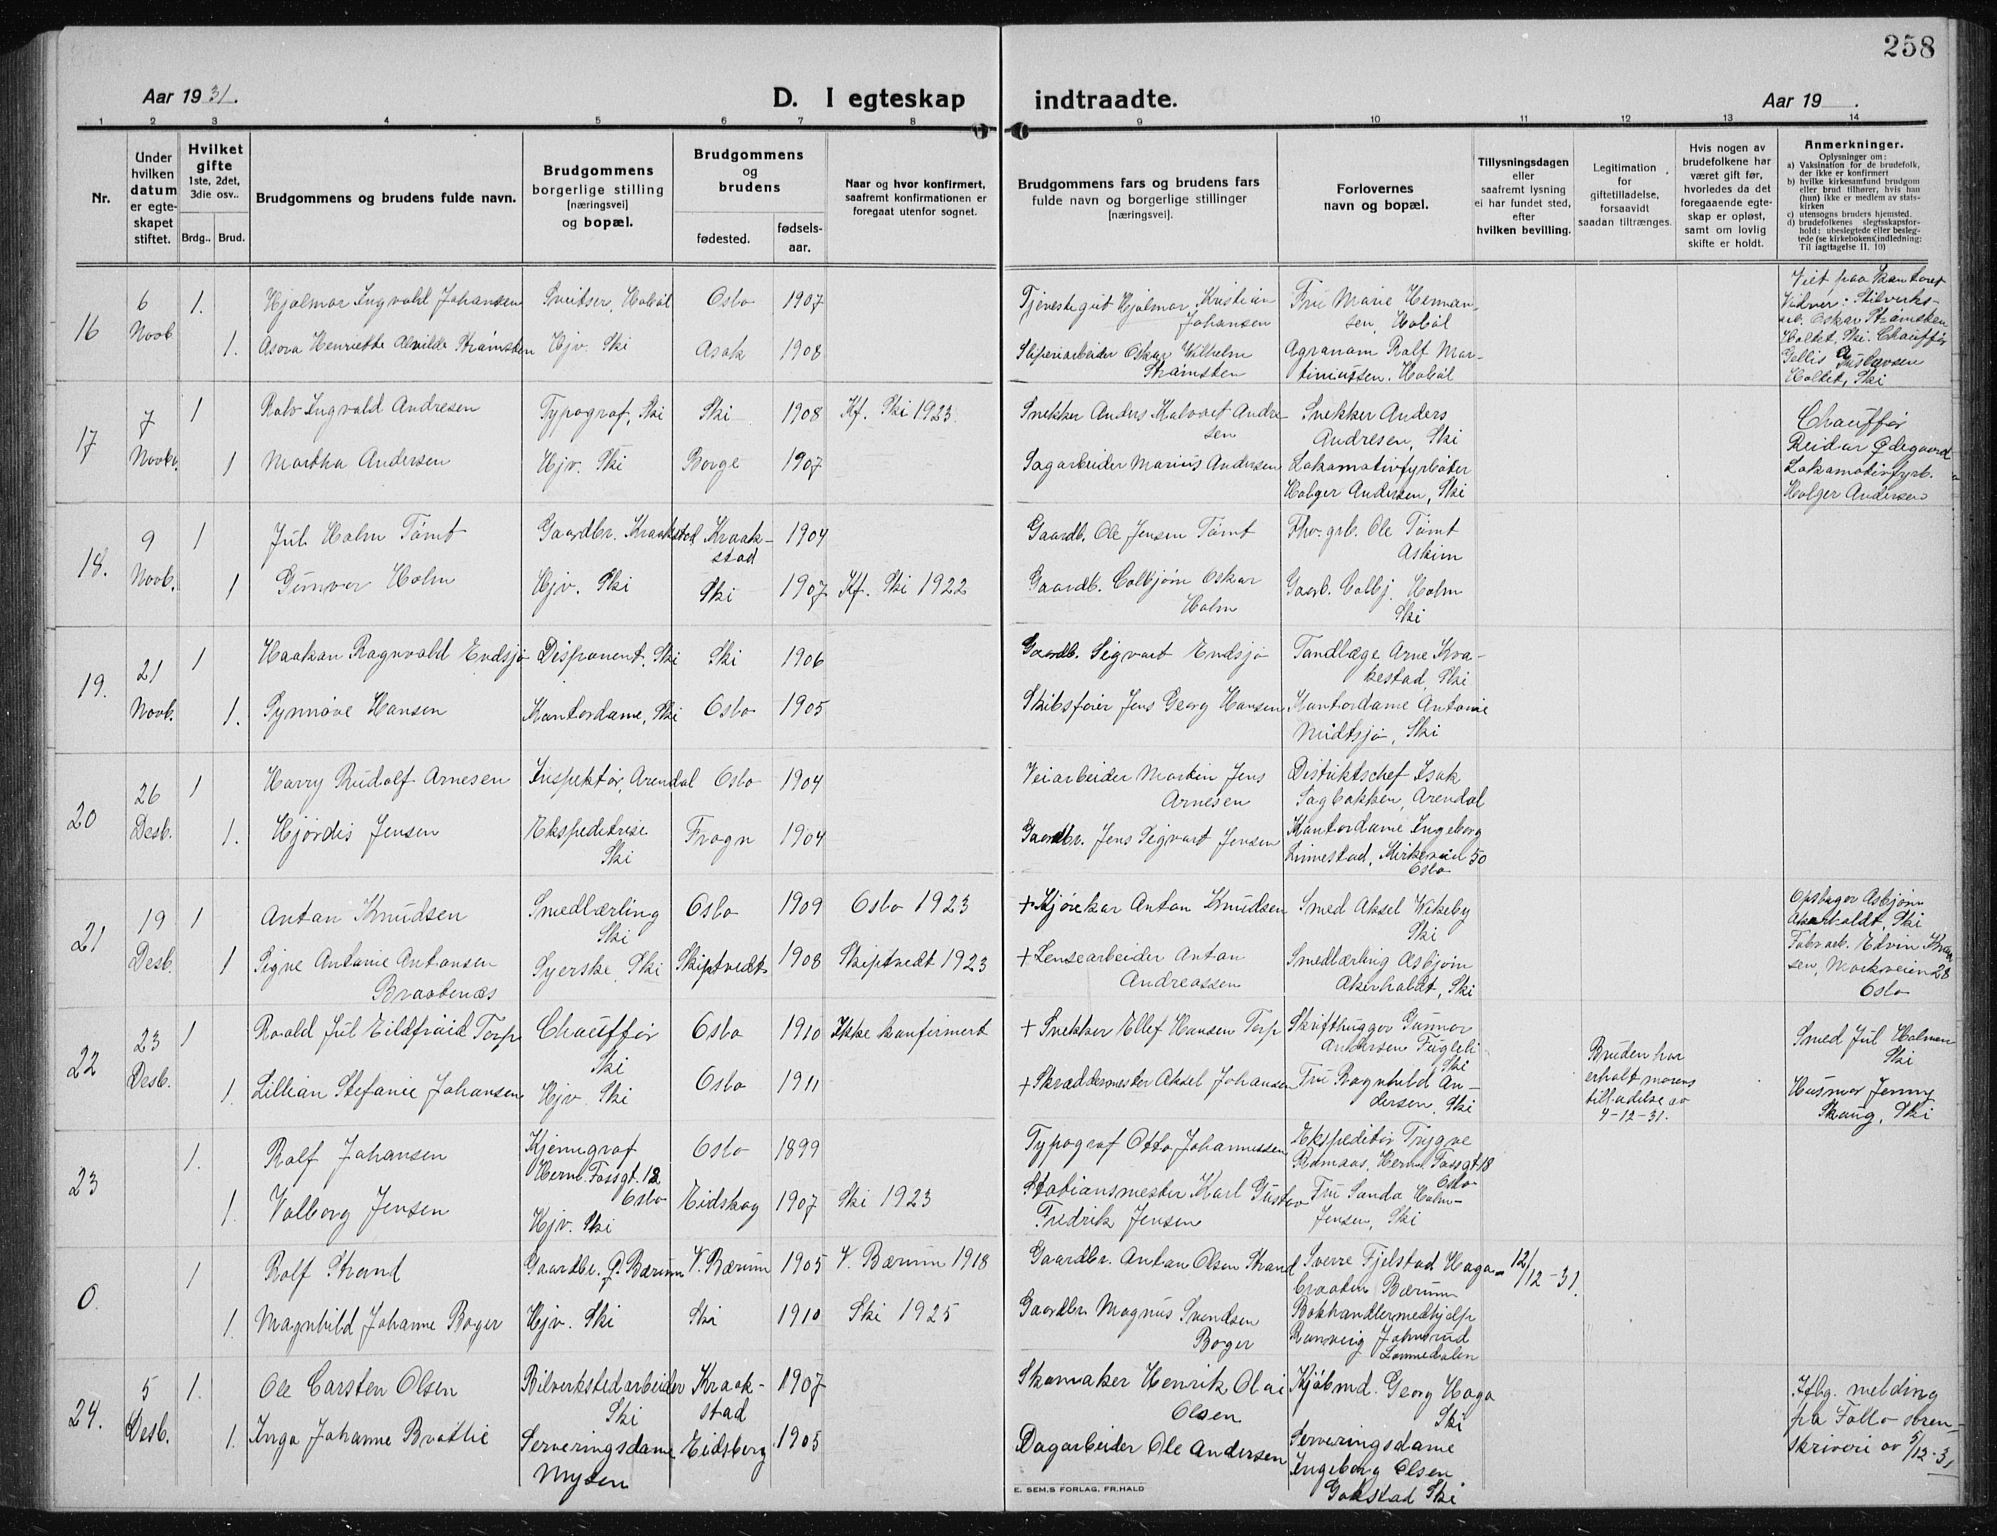 258
Aar 1931.
D. I egteskap indtraadte.
Aar 19 .
1 2 3 4 5 6 7 8 9 10 11 12 13 14
Nr.
Under hvilken datum er egteskapet stiftet.
Hvilket gifte
1ste, 2det, 3die osv..
Brdg.. Brud.
Brudgommens og brudens fulde navn.
Brudgommens borgerlige stilling [næringsvei] og bopæl.
Brudgommens og brudens
fødested.
fødselsaar.
Naar og hvor konfirmert, saafremt konfirmationen er foregaat utenfor sognet.
Brudgommens fars og brudens fars fulde navn og borgerlige stillinger [næringsvei].
Forlovernes navn og bopæl.
Tillysningsdagen eller saafremt lysning ei har fundet sted, efter hvilken bevilling.
Legitimation for giftetilladelse, forsaavidt saadan tiltrænges.
Hvis nogen av brudefolkene har været gift før, hvorledes da det foregaaende egteskap er opløst, samt om lovlig skifte er holdt.
Anmerkninger.
Oplysninger om:
a) Vaksination for de brudefolk, der ikke er konfirmert
b) hvilke kirkesamfund brudgom eller brud tilhører, hvis han (hun) ikke er medlem av statskirken
c) utensogns bruders hjemsted.
d) brudefolkenes slegtsskapsforhold: ubeslegtede eller beslegtede (se kirkebokens indledning: Til iagttagelse II. 10)
16
6 Novb.
1. Hjalmar Ingvald Johansen
Sveitser, Hobøl
Oslo 1907
Tjenestegut Hjalmar Kristian Johansen
Fru Marie Hermansen, Hobøl
1. Asora Henriette Alvilde Strømsten
Hjv. Ski
Asak 1908
Sliperiarbeider Oskar Wilhelm Strømsten
Agronom Rolf Martiniussen. Hobøl
Viet paa kontoret
Vidner: Oskar Strømsten
Holtet, Ski. Chauffør
Gustavsen
Holtet, Ski
17
7 Novbr.
1 Rolv Ingvald Andresen
Typograf, Ski
Ski 1908
Kf. Ski 1923.
Snekker Anders Halvart Andresen
Snekker Anders Andresen, Ski
1 Martha Andersen
Hjv. Ski
Borge 1907
Sagarbeider Marius Andersen
Lokomotivfyrbøter Holger Andersen, Ski
Chauffør
Reidar Ødegaard
Lokomotivfyrb.
Holger Andersen
18.
9 Novb.
1 Jul Holm Tømt
Gaardbr. Kraakstad
Kraakstad 1904
Gaardb. Ole Jensen Tømt
Fhv. grb. Ole Tømt Askim
1 Gunvor Holm
Hjv. Ski
Ski 1907
Kf. Ski 1922
Gaardb. Colbjørn Oskar Holm
Gaarb. Colbj. Holm Ski
19.
21 Novb.
1 Haakon Ragnvald Endsjø
Disponent, Ski
Ski 1906
Gaardb. Sigvart Endsjø
Tandlæge Arne Krakestad, Ski
1. Synnøve Hansen
Kontordame, Ski
Oslo 1905
Skibsfører Jens Georg Hansen
Kontordame Antonie Midtsjø, Ski
20
26 Desb.
1 Harry Rudolf Arnesen
Inspektør, Arendal
Oslo 1904
Veiarbeider Martin Jens Arnesen
Distriktschef Isak Sagbakken, Arendal
1. Hjørdis Jensen
Ekspeditrise Ski
Frogn 1904
Gaardbr. Jens Sigvart Jensen
Kontordame Ingeborg Linnestad, Kirkeveien 50 Oslo
21
19 Desb.
1 Anton Knudsen
Smedlærling Ski
Oslo 1909
Oslo 1923
+ Kjørekar Anton Knudsen
Smed Aksel Wekeby Ski
1 Signe Antonie Antonsen Braatenæs
Syerske, Ski
Skiptvedt 1908
Skiptvedt 1923
+ Lensearbeider Anton Andreassen
Smedlærling Asbjørn Akerholdt, Ski
Opsluger Asbjørn
Akerholdt, Ski
Fabrarb. Edvin
sen, Markveien 28
Oslo
22
23 Desb.
1 Roald Jul Eildfraid Torp
Chauffør Ski
Oslo 1910
Ikke konfirmert
+ Snekker Ellef Hansen Torp
Skrifthugger Gunnar Andersen Fugleli Ski
1. Lillian Stefanie Johansen
Hjv. Ski
Oslo 1911
+ Skræddermester Aksel Johansen
Fru Ragnhild Andersen, Ski
Bruden har
erholt morens
tilladelse av
4-12-31.
Smed Jul Holmen
Ski
Husmor Jenny
Skaug, Ski
23
1. Rolf Johansen
Kjemigraf Herm. Fossgt. 18 Oslo
Oslo 1899
Typograf Otto Johannessen
Ekspeditør Trygve Romaas, Herm. Fossgt. 18 Oslo
1. Valborg Jensen
Hjv. Ski
Eidskog 1907
Ski 1923
Stationsmester Karl Gustav Fredrik Jensen
Fru Sanda Holm-Jensen, Ski
0
1 Rolf Strand
Gaardbr. Ø. Bærum
V. Bærum 1905
V. Bærum 1918
Gaardbr. Anton Olsen Strand
Sverre Fjelstad Hagabraaten Bærum
12/12-31.
1. Magnhild Johanne Boger
Hjv. Ski
Ski 1910
Ski 1925
Gaardbr. Magnus Svendsen Boger
Bokhandlermedhjelp Ranveig Johnsrud Lommedalen
24.
5 Desb.
1. Ole Carsten Olsen
Bilverkstedarbeider Ski
Kraakstad 1907
Skomaker Henrik Olai Olsen
Kjøbmd. Georg Haga Ski
1. Inga Johanne Brøtlie
Serveringsdame Mysen
Eidsberg 1905
Dagarbeider Ole Andersen
Serveringsdame Ingeborg Olsen Gokstad Ski
Iflg. melding
på Follo soren-
skriveri av 5/12-31
E. SEM.S FORLAG, FR.HALD